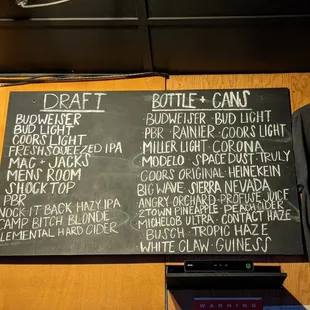 DRAFT
BUDWEISER
BUD LIGHT
COORS LIGHT
FRESH SQUEEZED IPA
MAC + JACKS
MENS ROOM
SHOCK TOP
PBR
NOCK IT BACK HAZY IPA
CAMP BITCH BLONDE
LEMENTAL HARD CIDER
BOTTLE + CANS
BUDWEISER · BUD LIGHT
PBR · RAINIER · COORS LIGHT
MILLER LIGHT · CORONA
MODELO · SPACE DUST · TRULY
COORS ORIGINAL · HEINEKEIN
BIG WAVE · SIERRA NEVADA
ANGRY ORCHARD · PROFUSE JUICE
2 TOWN PINEAPPLE PEACH CIDER
MICHELOB ULTRA · CONTACT HAZE
BUSCH · TROPIC HAZE
WHITE CLAW · GUINESS
WARNING